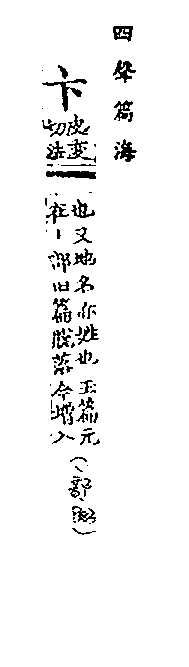 四聲篇海
卞
皮變
切法
也又地名亦姓也玉篇元
在丨部旧篇脫落今增入
(丶部)